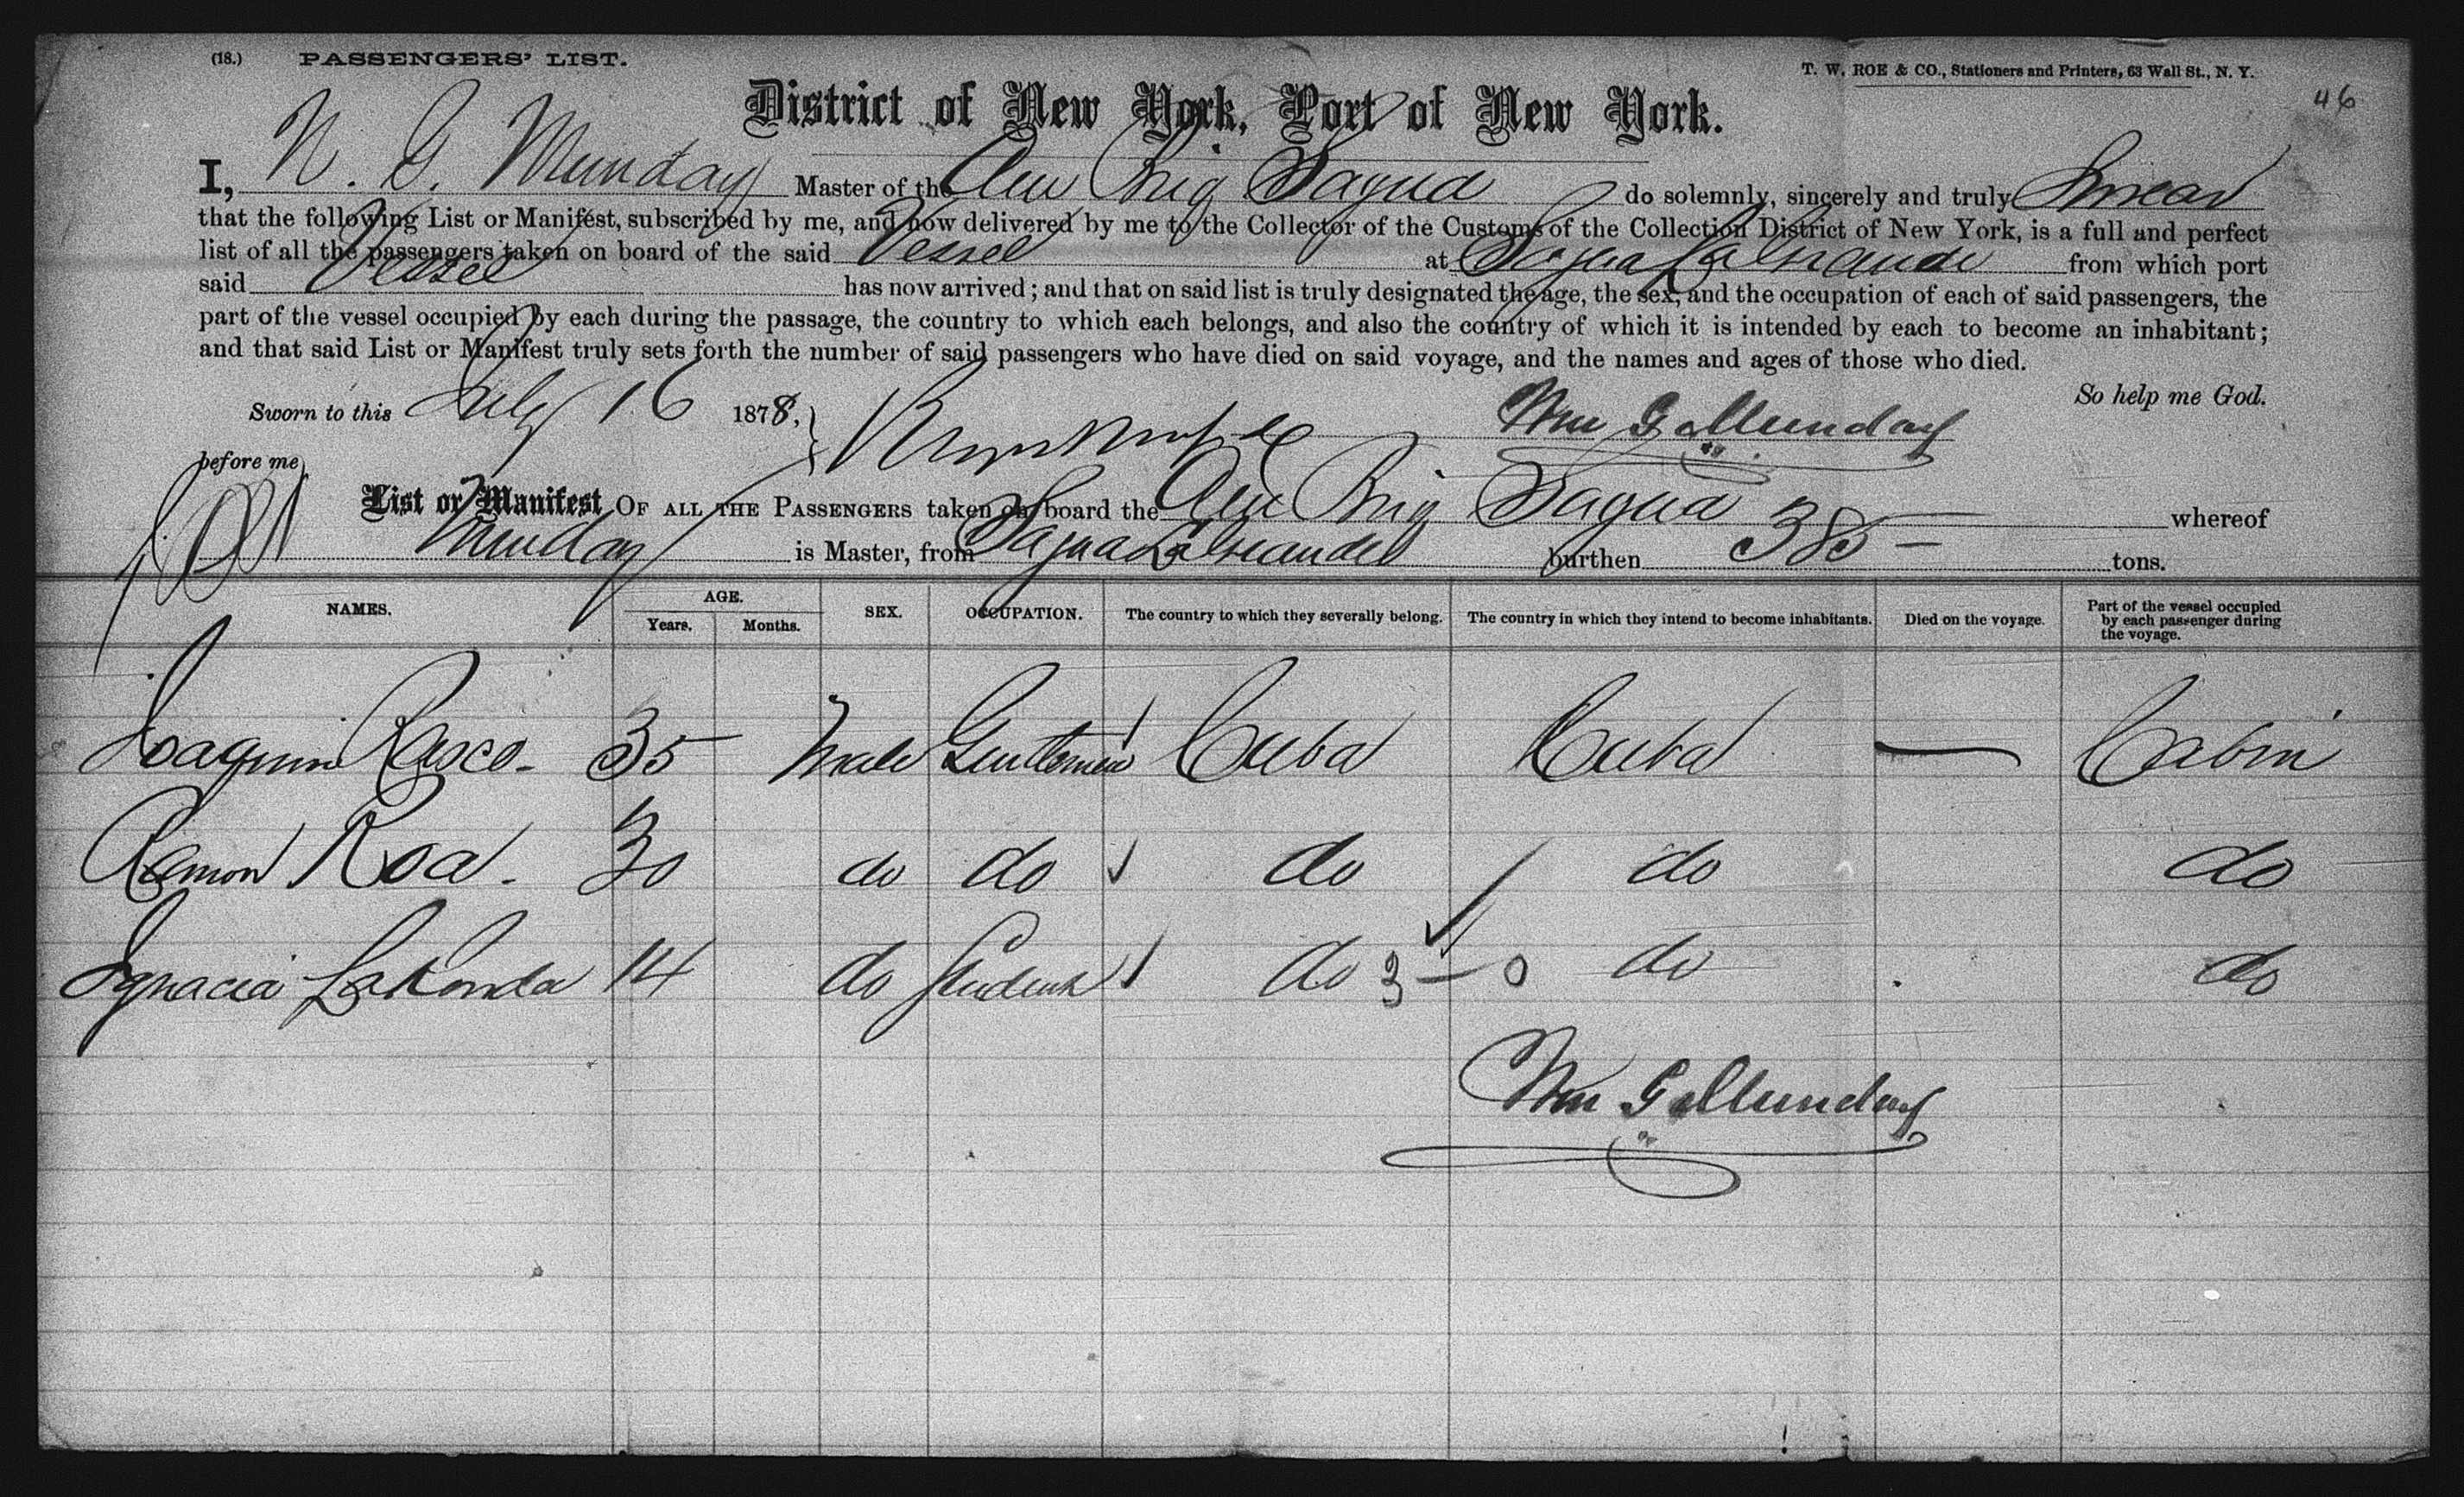 (18.) PASSENGERS' LIST.
T. W. ROE & CO., Stationers and Printers, 63 Wall St., N. Y.
46
District of New York, Port of New York.
I, W. G. Munday Master of the Am Brig Sagua do solemnly, sincerely and truly Swear
that the following List or Manifest, subscribed by me, and now delivered by me to the Collector of the Customs of the Collection District of New York, is a full and perfect
list of all the passengers taken on board of the said Vessel at Sagua La Grande from which port
said Vessel has now arrived; and that on said list is truly designated the age, the sex, and the occupation of each of said passengers, the
part of the vessel occupied by each during the passage, the country to which each belongs, and also the country of which it is intended by each to become an inhabitant;
and that said List or Manifest truly sets forth the number of said passengers who have died on said voyage, and the names and ages of those who died.
So help me God.
Sworn to this July 16 1878, Wm G Munday
before me
List or Manifest OF ALL THE PASSENGERS taken on board the Am Brig Sagua whereof
Munday is Master, from Sagua La Grande burthen 385 tons.
NAMES. AGE. Years. Months. SEX. OCCUPATION. The country to which they severally belong. The country in which they intend to become inhabitants. Died on the voyage. Part of the vessel occupied by each passenger during the voyage.
Joaquin Rasco - 35 Male Gentleman Cuba Cuba — Cabin
Ramon Roa - 30 do do do do do
Ignacia LaRonda 14 do Student do 3 - 0 do do
Wm G Munday